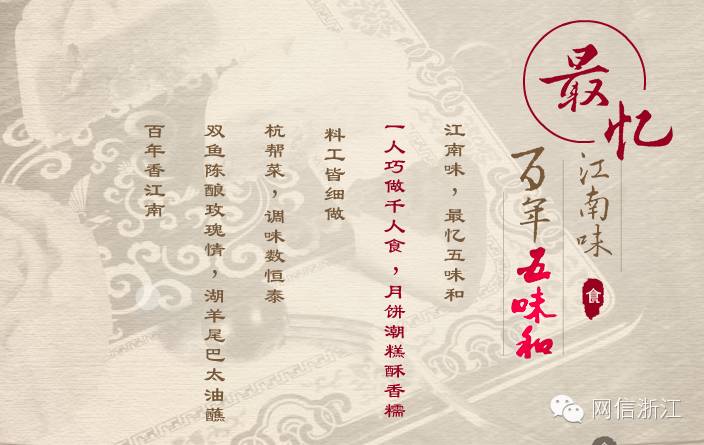 最忆
江南味
食
百年五味和
江南味，最忆五味和
一人巧做千人食，月饼潮糕酥香糯
料工皆细做
杭帮菜，调味数恒泰
双鱼陈酿玫瑰情，湖羊尾巴太油蘸
百年香江南
网信浙江